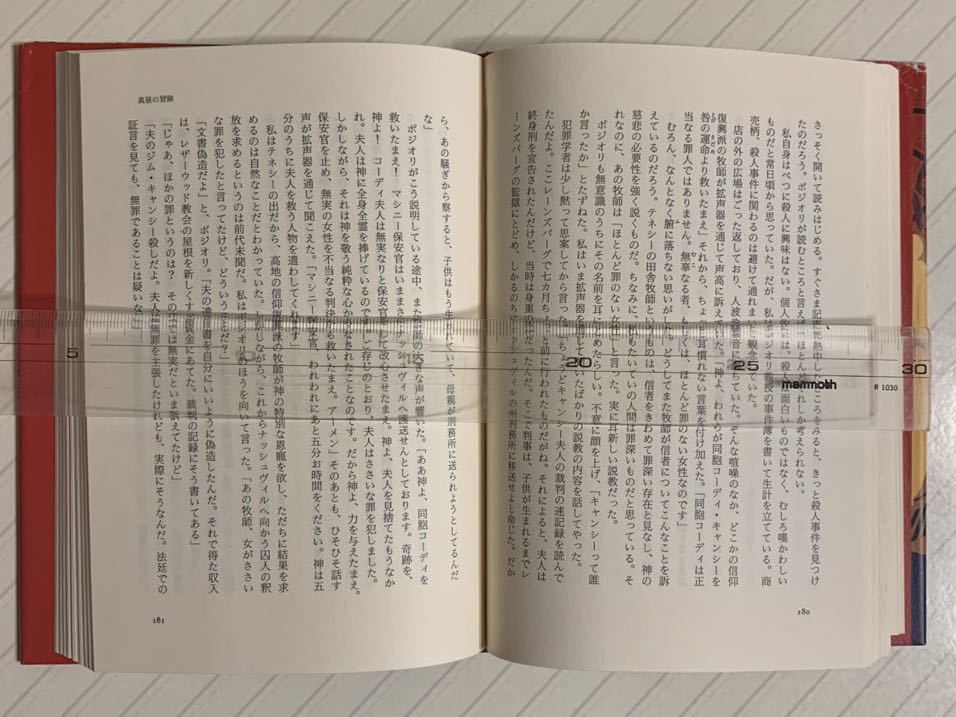 さっそく開いて読みはじめる。すぐさま記事に熱中したところをみると、きっと殺人事件を見つけ
たのだろう。ポジオリが読むところと言えばほとんどそれしか考えられない。
私自身はべつに殺人に興味はない。個人的には、殺人は面白いものではなく、むしろ嘆かわしい
ものだと常日頃から思っていた。だが、私はポジオリ教授の事件簿を書いて生計を立てている。商
売柄、殺人事件に関わるのは避けて通れまいと観念していた。
店の外の広場はごった返しており、人波や騒音に満ちていた。そんな喧噪のなか、どこかの信仰
復興派の牧師が拡声器を通じて声高に訴えていた。「神よ、われらが同胞コーディ・キャンシーを
咎の運命より救いたまえ」それから、ちょっと耳慣れない言葉を付け加えた。「同胞コーディは正
当なる罪人ではありません。無辜なる者、もしくは、ほとんど罪のない女性なのです」
むろん、なんとなく腑に落ちない思いがした。どうしてまた牧師が信者についてこんなことを訴
えているのだろう。テネシーの田舎牧師というものは、信者をきわめて罪深い存在と見なし、神の
慈悲の必要性を強く説くものだ。ちなみに、私もたいていの人間は罪深いものだと思っている。そ
れなのに、あの牧師は「ほとんど罪のない女性」と言った。実に耳新しい説教だった。
ポジオリも無意識のうちにその名前を耳にとめたらしい。不意に顔を上げ、「キャンシーって誰
か言ったか」とたずねた。私はいま拡声器を通じて
たばかりの説教の内容を話してやった。
犯罪学者は少し黙って思案してから言った。「ちょうどキャンシー夫人の裁判の速記録を読んで
たんだよ。ここレーンズバーグで七カ月ちょっと前に行われたものだがね。それによると、夫人は
終身刑を宣告されたんだけど、当時は身重の体だったんだ。そこで判事は、子供が生まれるまでレ
ーンズバーグの監獄にとどめ、しかるのちにナッシュヴィルの州刑務所に移送せよと命じた。だか
180
真昼の冒険
ら、あの騒ぎから察すると、子供はもう生まれていて、母親が刑務所に送られようとしてるんだ
な」
ポジオリがこう説明している途中、また牧師の大きな声が響いた。「ああ神よ、同胞コーディを
救いたまえ！　マシニー保安官はいままさにナッシュヴィルへ護送せんとしております。奇跡を、
神よ！　コーディ夫人は無実なりと保安官をして改心させたまえ。神よ、夫人を見捨てたもうなか
れ。夫人は神に全身全霊を捧げているのです！　ご存じのとおり、夫人はささいな罪を犯しました。
しかしながら、それは神を敬う純粋な心からなされたことなのです。だから神よ、力を与えたまえ。
保安官を止め、無実の女性を不当なる判決から救いたまえ。アーメン」そのあとも、ひそひそ話す
声が拡声器を通じて聞こえた。「マシニー保安官、われわれにあと五分お時間をください。神は五
分のうちに夫人を救う人物を遣わしてくれます」
私はテネシーの出だから、高地の信仰復興派の牧師が神の特別な恩寵を欲し、ただちに結果を求
めるのは自然なことだとわかっていた。しかしながら、これからナッシュヴィルへ向かう囚人の釈
放を求めるというのは前代未聞だ。私はポジオリのほうを向いて言った。「あの牧師、女がささい
な罪を犯したと言ってたけど、どういうことだ？」
「文書偽造だよ」と、ポジオリ。「夫の遺言書を自分にいいように偽造したんだ。それで得た収入
は、レザーウッド教会の屋根を新しくする資金にあてた。裁判の記録にそう書いてある」
「じゃあ、ほかの罪というのは？　その件では無実だといま訴えてたけど」
「夫のジム・キャンシー殺しだよ。夫人は無罪を主張したけれども、実際にそうなんだ。法廷での
証言を見ても、無罪であることは疑いない」
181
5
15
20
25
30
mammoth
R 1030